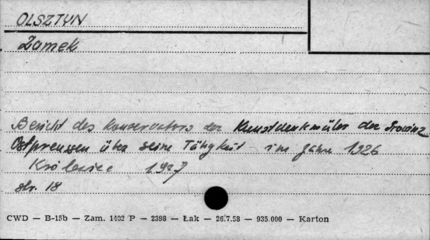 OLSZTYN
Zamek
Bericht des Konservators der Kunstdenkmäler der Provinz
Ostpreussen über seine Tätigkeit im Jahre 1926
Królewiec 1927
str. 18
CWD — B-15b — Zam. 1432 P — 2398 — Łak — 26.7.58 — 935.000 — Karton